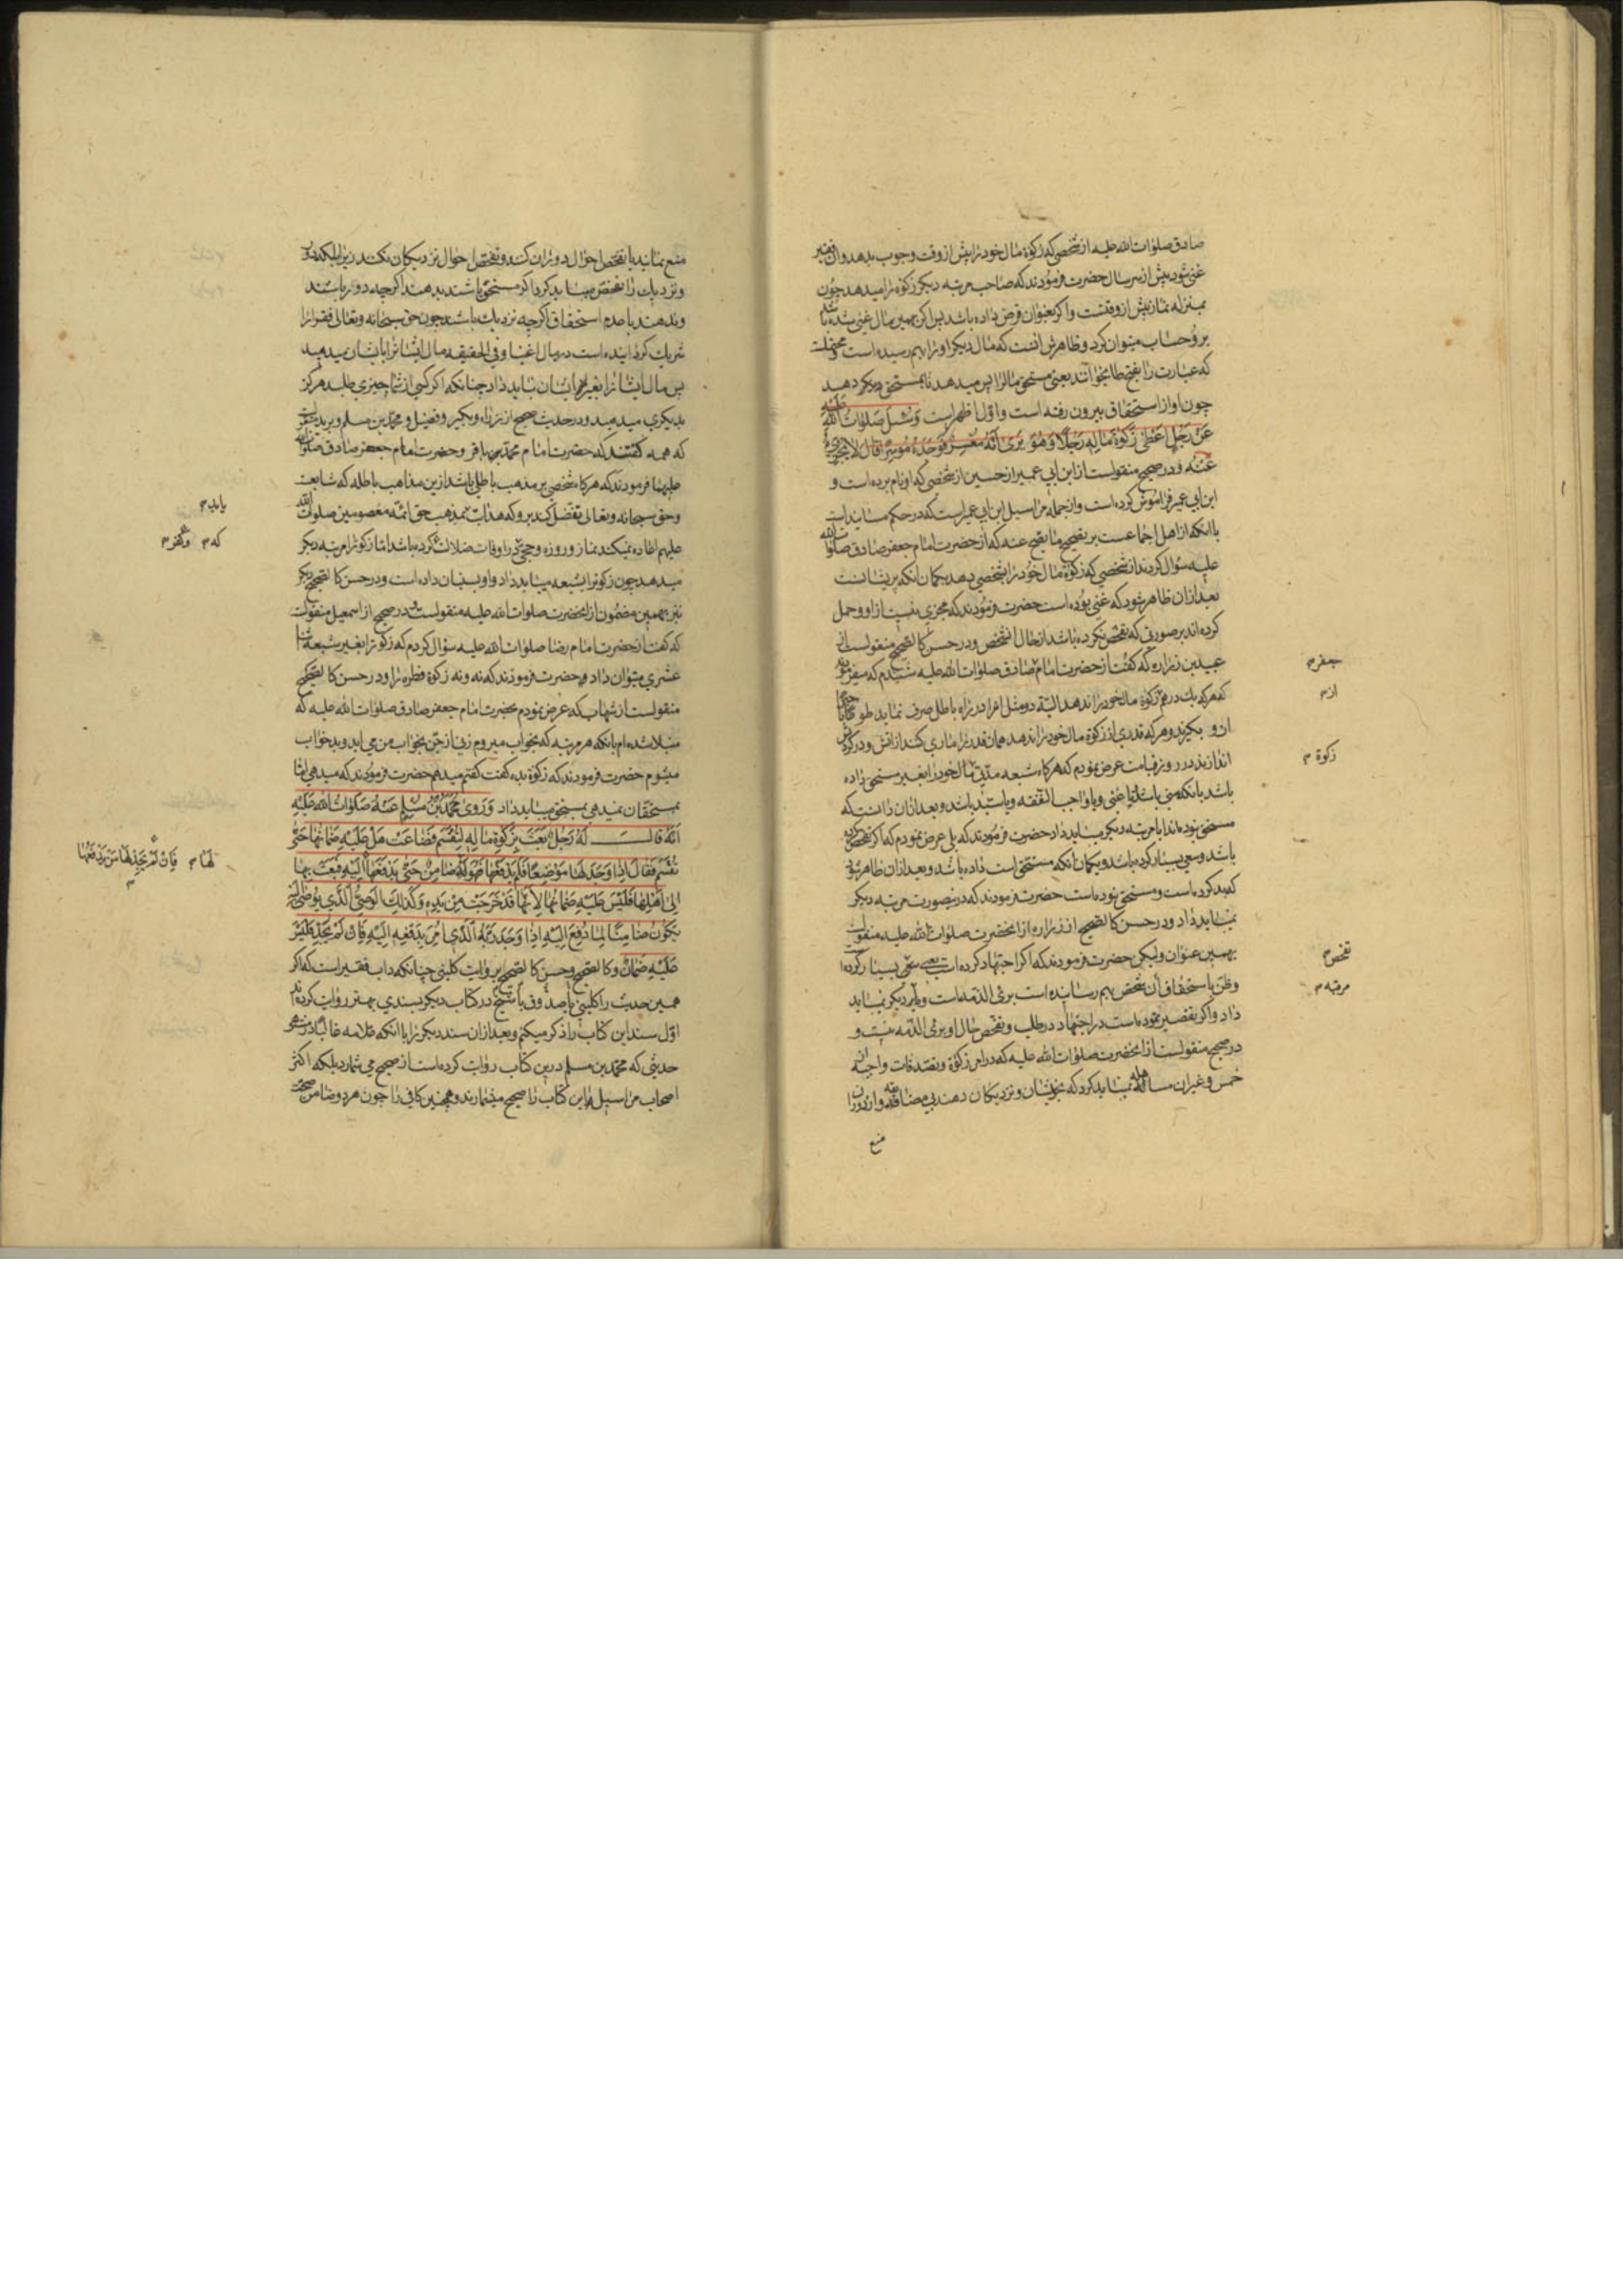 صادق صلوات الله علیه از شخصی که زکوة مال خود را پیش از وقت وجوب بدهد و آن فقیر
غنی شود پیش از سر سال حضرت فرمودند که صاحب مرتبه دیکر زکوة را میدهد چون
بمنزله نماز پیش از وقتست و اکر بعنوان قرض داده باشد پس اکر بهمین مال غنی شده باشد
برو حساب میتوان کرد و ظاهرش آنست که مال دیکر او را بهم رسیده است و محتملست
که عبارت را بفتح طا بخوانند یعنی مستحق مال را پس میدهد تا بمستحق دیکر دهد
چون او از استحقاق بیرون رفته است و اول اظهر است وَسُئِلَ صَلَوٰاتُ اللهِ عَلَیْهِ
عَنْ رَجُلٍ اَعْطىٰ زَکوٰةَ مٰالِهِ رَجُلًا وَهُوَ یَرىٰ اَنَّهُ مُعْسِرٌ فَوَجَدَهُ مُوسِرًا قٰالَ لٰا یُجْزِي
عَنْهُ و در صحیح منقولست از ابن ابی عمیر از حسین از شخصی که او نام برده است و
ابن ابی عمیر فراموش کرده است و از جمله مراسیل ابن ابی عمیر است که در حکم مسانید است
با انکه از اهل اجماعست بر تصحیح ما یصح عنه که از حضرت امام جعفر صادق صلوات الله
علیه سؤال کردند از شخصی که زکوة مال خود را بشخصی دهد بکمان انکه پریشانست
بعد از ان ظاهر شود که غنی بوده است حضرت فرمودند که مجزی نیست از او و حمل
کرده اند بر صورتی که تفحص نکرده باشد از حال ان شخص و در حسن کالصحیح منقولست از
عبید بن زراره که کفت از حضرت امام صادق صلوات الله علیه شنیدم که میفرمودند
جعفر م
که هر که یك درهم زکوة مال خود را ندهد البته دو مثل انرا در راه باطل صرف نماید
از م
از و بکیرند و هر که قدری از زکوة مال خود را ندهد همان قدر را ماری کند از آتش و در کردنش
اندازند در روز قیامت عرض نمودم که هر کاه شیعه مال خود را بغیر مستحق داده
زکوة م
باشد بانکه سنی باشد یا غنی و یا واجب النفقه و یا سید باشد و بعد از ان دانست که
مستحق نبوده اند ایا مرتبه دیکر میباید داد حضرت فرمودند که بلی عرض نمودم که اکر تفحص کرده
باشد و سعی بسیار کرده باشد و بکمان انکه مستحق است داده باشد و بعد از ان ظاهر شود
که بد کرده است و مستحق نبوده است حضرت فرمودند که درینصورت مرتبه دیکر
نمیباید داد و در حسن کالصحیح از زراره از انحضرت صلوات الله علیه منقولست
بهمین عنوان ولیکن حضرت فرمودند که اکر اجتهاد کرده است یعنی سعی بسیار کرده است
تفحص م
و ظن باستحقاق آن شخص بهم رسانیده است برئ الذمه است و بار دیکر نمیباید
مرتبه م
داد و اکر تقصیر نموده است در اجتهاد در طلب و تفحص حال او برئ الذمه نیست و
در صحیح منقولست از انحضرت صلوات الله علیه که در امر زکوة و تصدقات واجبه از
خمس و غیر ان مساهله نمیباید کرد که بخویشان و نزدیکان دهند بی مضایقه و از دوران
منع
منع نمایند یا تفحص احوال دوران کنند و تفحص احوال نزدیکان نکنند زیرا بلکه دور
و نزدیك را تفحص میباید کرد اکر مستحق باشند بدهند اکرچه دور باشند
و ندهند با عدم استحقاق اکرچه نزدیك باشند چون حق سبحانه و تعالی فقرا را
شریك کردانیده است در مال اغنیا و فی الحقیقه مال ایشانرا بایشان میدهید
پس مال ایشانرا بغیر ایشان نباید داد چنانکه اکر کسی از شما چیزی طلبد هرکز
بدیکری میدهید و در حدیث صحیح از زراره و بکیر و فضیل و محمد بن مسلم و برید
که همه کفتند که حضرت امام محمد باقر و حضرت امام جعفر صادق صلوات الله
علیهما فرمودند که هر کاه شخصی بر مذهب باطلی باشد ازین مذاهب باطله که شایعست
و حق سبحانه و تعالی تفضل کند برو که هدایت بمذهب حق ائمه معصومین صلوات الله
یابد م
علیهم اعاده نمیکند نماز و روزه و حجی را که در اوقات ضلالت کرده باشد اما زکوة را مرتبه دیکر
که م وکفر م
میدهد چون زکوة را بشیعه میباید داد و او بسنیان داده است و در حسن کالصحیح دیکر
نیز بهمین مضمون از انحضرت صلوات الله علیه منقولست و در صحیح از اسمعیل منقولست
که کفت از حضرت امام رضا صلوات الله علیه سؤال کردم که زکوة را بغیر شیعه اثنا
عشری میتوان داد حضرت فرمودند که نه و نه زکوة فطره را و در حسن کالصحیح
منقولست از شهاب که عرض نمودم بحضرت امام جعفر صادق صلوات الله علیه که
مبتلا شده ام بانکه هر مرتبه که بخواب میروم زنی از جن بخواب من می اید و بدخواب
میشوم حضرت فرمودند که زکوة بده کفت کفتم میدهم حضرت فرمودند که میدهی اما
بمستحقان نمیدهی بمستحق میباید داد وَرَوىٰ مُحَمَّدُ بْنُ مُسْلِمٍ عَنْهُ صَلَوٰاتُ اللهِ عَلَیْهِ
اَنَّهُ قٰالَ لَهُ رَجُلٌ بَعَثَ بِزَکوٰةِ مٰالِهِ لِتُقْسَمَ فَضٰاعَتْ هَلْ عَلَیْهِ ضَمٰانُهٰا حَتّىٰ
تُقْسَمَ فَقٰالَ اِذٰا وَجَدَ لَهٰا مَوْضِعًا فَلَمْ یَدْفَعْهٰا فَهُوَ لَهٰا ضٰامِنٌ حَتّىٰ یَدْفَعَهٰا اِلَیْهِ فَبَعَثَ بِهٰا
لَهٰا م فَاِنْ لَمْ یَجِدْ لَهٰا مَنْ یَدْفَعُهٰا
اِلىٰ اَهْلِهٰا فَلَیْسَ عَلَیْهِ ضَمٰانُهٰا لِاَنَّهٰا قَدْ خَرَجَتْ مِنْ یَدِهِ وَکَذٰلِكَ الْوَصِيُّ الَّذِي یُوصىٰ اِلَیْهِ
یَکُونُ ضٰامِنًا لِمٰا دُفِعَ اِلَیْهِ اِذٰا وَجَدَ رَبَّهُ الَّذِي اُمِرَ بِدَفْعِهِ اِلَیْهِ فَاِنْ لَمْ یَجِدْ فَلَیْسَ
عَلَیْهِ ضَمٰانٌ و کالصحیح و حسن کالصحیح بروایت کلینی چنانکه داب فقیر است که اکر
همین حدیث را کلینی یا صدوق یا شیخ در کتاب دیکر بسندی بهتر روایت کرده اند
اول سند این کتاب را ذکر میکنم و بعد از ان سند دیکر را با انکه علامه غالبا در هر
حدیثی که محمد بن مسلم درین کتاب روایت کرده است از صحیح می شمارد بلکه اکثر
اصحاب مراسیل این کتاب را صحیح میشمارند و همچنین کافی را چون هر دو ضامن صحت